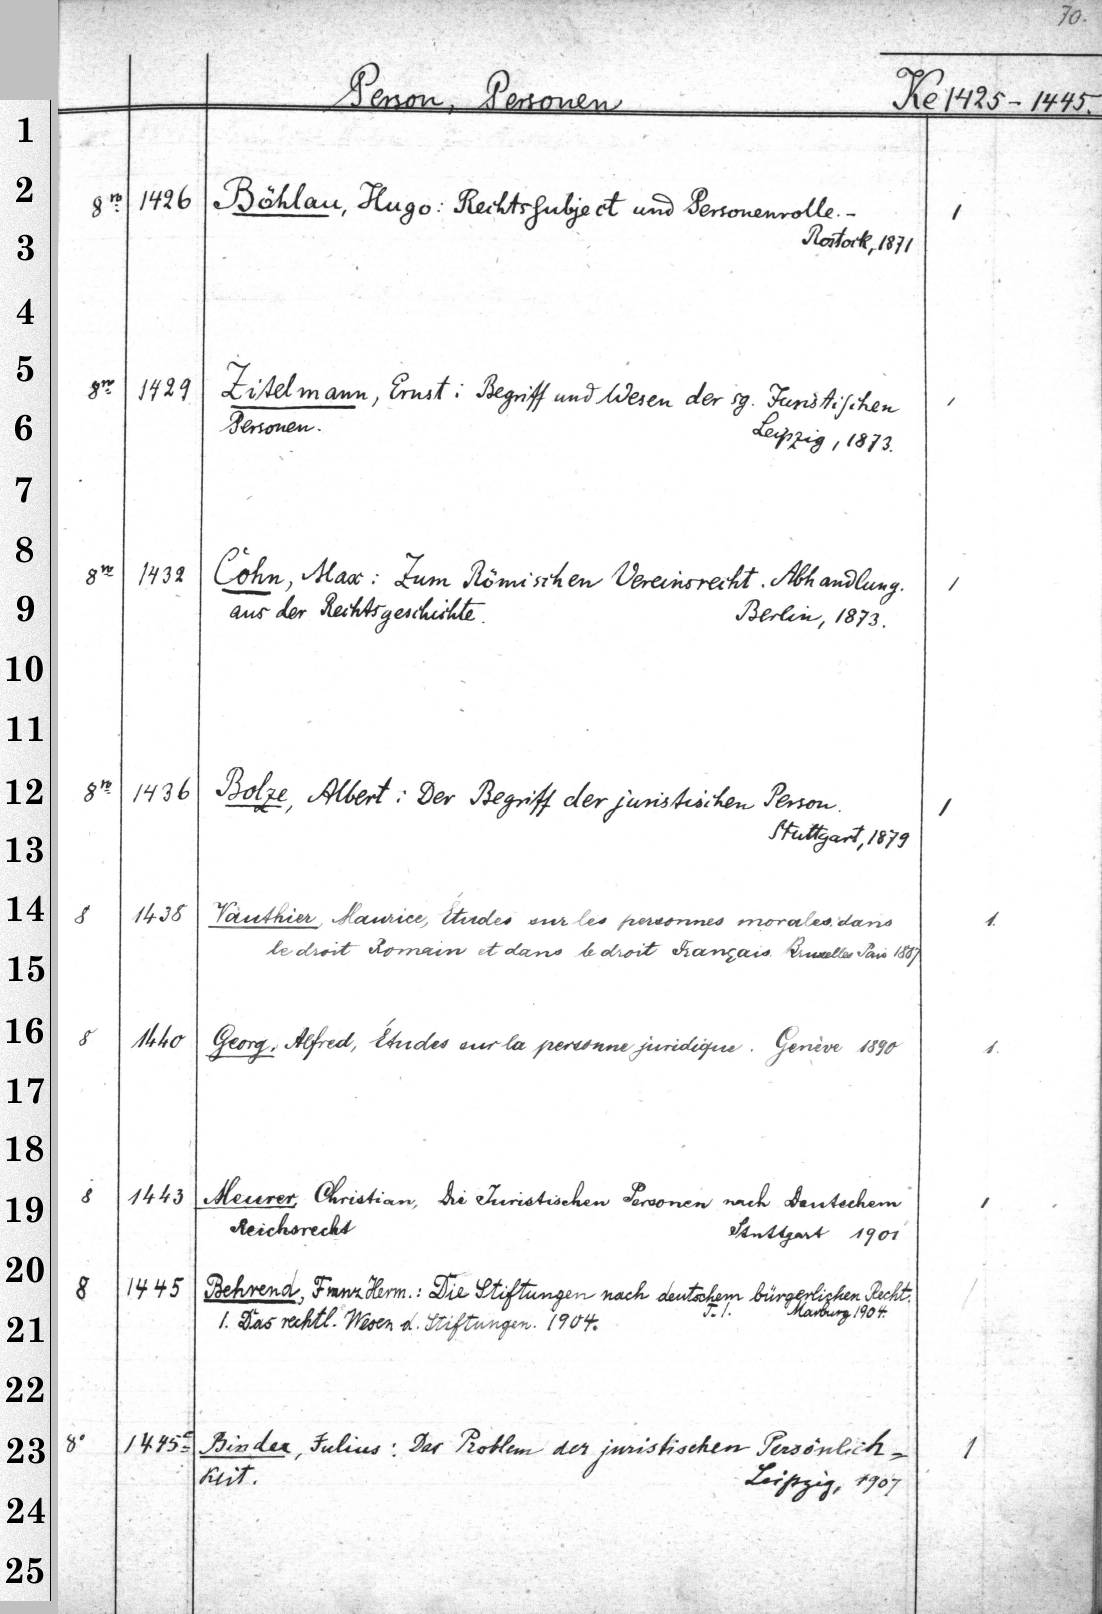 70.
Person, Personen Ke 1425 - 1445.
1
2 8vo 1426 Böhlau, Hugo: Rechtssubject und Personenrolle. - 1
3 Rostock, 1871
4
5 8vo 1429 Zitelmann, Ernst: Begriff und Wesen der sg. Juristischen 1
6 Personen. Leipzig, 1873.
7
8 8vo 1432 Cohn, Max: Zum Römischen Vereinsrecht. Abhandlung. 1
9 aus der Rechtsgeschichte. Berlin, 1873.
10
11
12 8vo 1436 Bolze, Albert: Der Begriff der juristischen Person. 1
13 Stuttgart, 1879
14 8 1438 Vauthier, Maurice, Études sur les personnes morales dans 1.
15 le droit Romain et dans le droit Français. Bruxelles Paris 1887
16 8 1440 Georg, Alfred, Études sur la personne juridique. Genève 1890 1.
17
18
19 8 1443 Meurer, Christian, Die Juristischen Personen nach Deutschem 1
Reichsrecht Stuttgart 1901
20 8 1445 Behrend, Franz Herm.: Die Stiftungen nach deutschem bürgerlichen Recht. /
T. 1. Marburg 1904.
21 1. Das rechtl. Wesen d. Stiftungen. 1904.
22
23 8° 1445a Binder, Julius: Das Problem der juristischen Persönlich- 1
keit. Leipzig, 1907
24
25